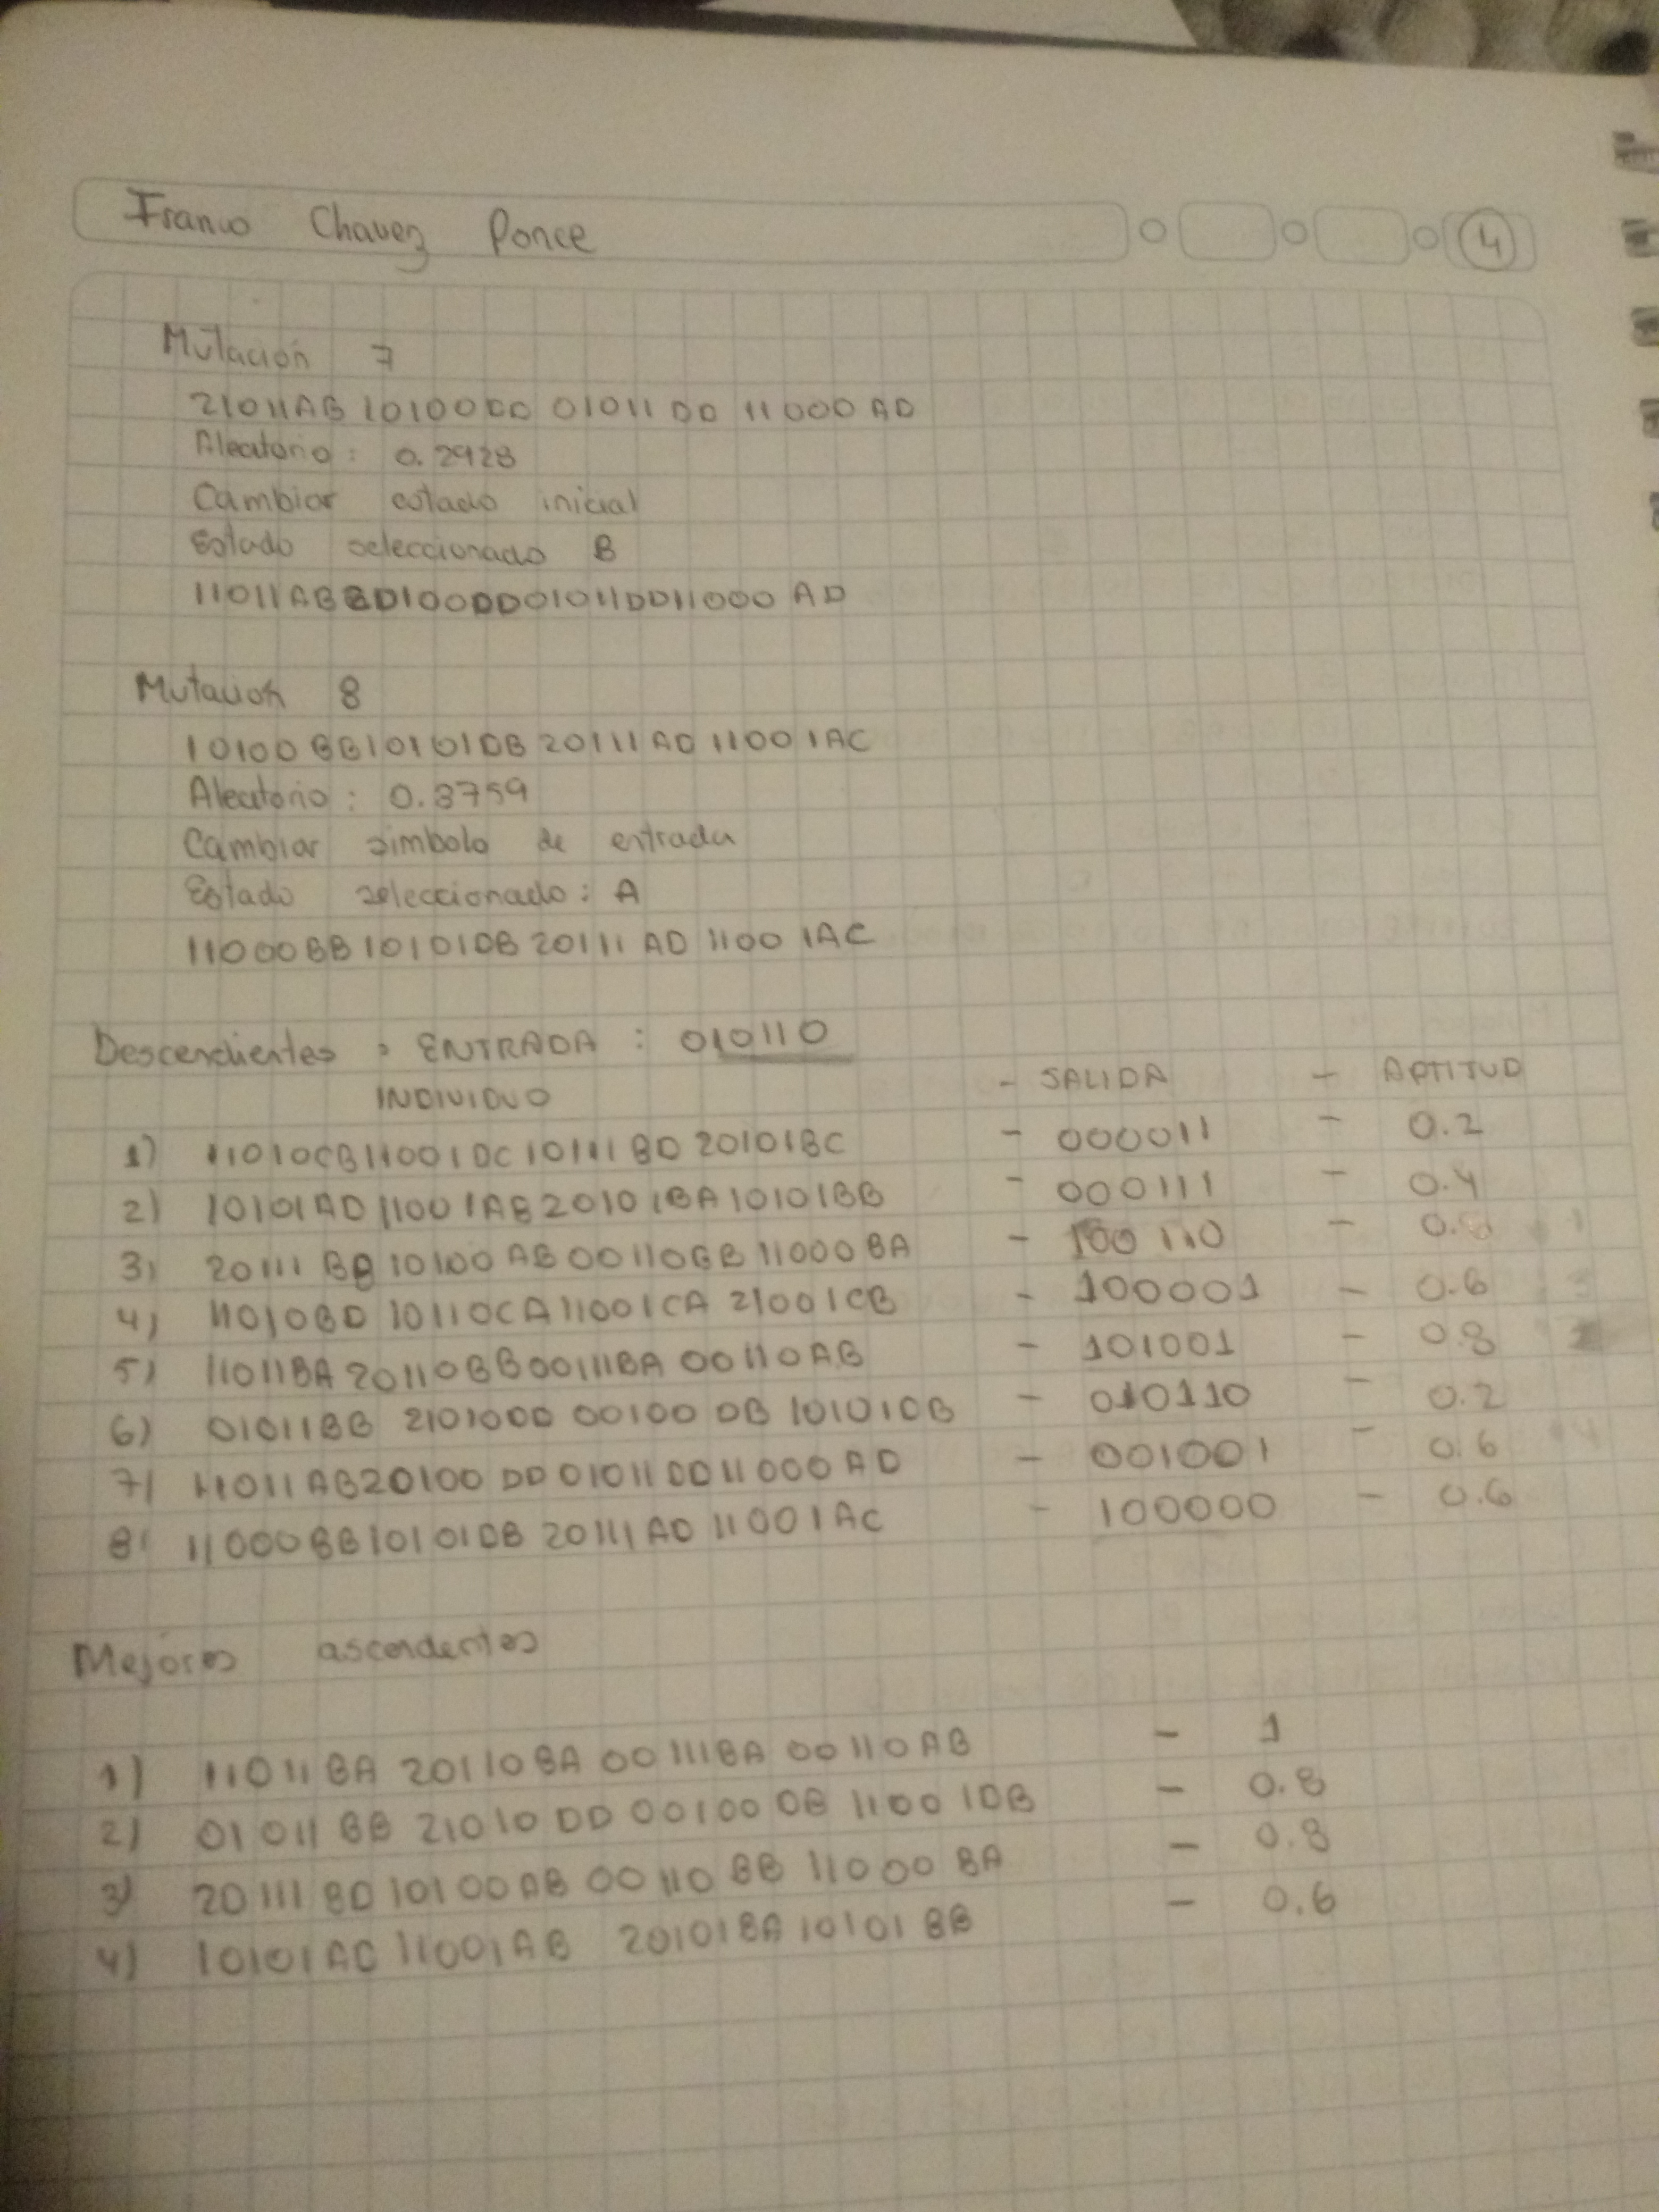 Franco Chavez Ponce
4
Mutación 7
21011AB 10100DD 01011 DD 11000 AD
Aleatorio: 0.2928
Cambiar estado inicial
Estado seleccionado B
11011AB 20100DD01011DD11000 AD
Mutación 8
10100 BB10101DB 20111 AD 11001AC
Aleatorio: 0.3759
Cambiar simbolo de entrada
Estado seleccionado: A
11000BB 10101DB 20111 AD 11001AC
Descendientes > ENTRADA : 010110
INDIVIDUO - SALIDA - APTITUD
1) 11010CB11001DC 10111 BD 20101BC - 000011 - 0.2
2) 10101AD 11001AB 20101BA 10101BB - 000111 - 0.4
3) 20111 BB 10100 AB 00110BB 11000 BA - 100110 - 0.8 1
4) 11010BD 10110CA 11001CA 21001CB - 100001 - 0.6 3
5) 11011BA 20110BB00111BA 00110AB - 101001 - 0.8 2
6) 01011BB 21010DD 00100 DB 10101DB - 010110 - 0.2
7) 11011AB20100 DD 01011DD11000 AD - 001001 - 0.6 4
8) 11000BB10101DB 20111 AD 11001AC - 100000 - 0.6
Mejores ascendentes
1) 11011BA 20110BA 00111BA 00110AB - 1
2) 01011 BB 21010 DD 00100 DB 11001DB - 0.8
3) 20111 BD 10100AB 00110 BB 11000 BA - 0.8
4) 10101AD 11001AB 20101BA 10101 BB - 0.6